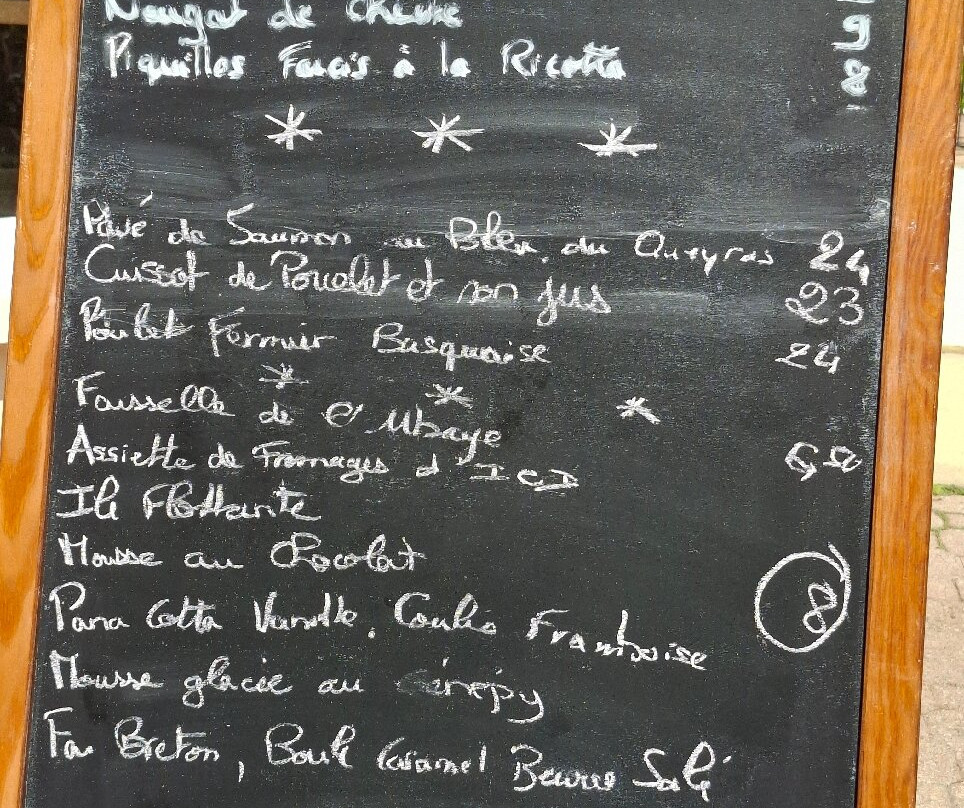 Nougat de Chèvre 9
Piquillos Farcis à la Ricotta 8
Pavé de Saumon au Bleu du Queyras 24
Cuissot de Porcelet et son jus 23
Poulet Fermier Basquaise 24
Faisselle de l'Ubaye
Assiette de Fromages d'ICI 6,50
Ile Flottante
Mousse au Chocolat
Pana Cotta Vanille, Coulis Framboise 8
Mousse glacée au Génépy
Far Breton, Boule Caramel Beurre Salé